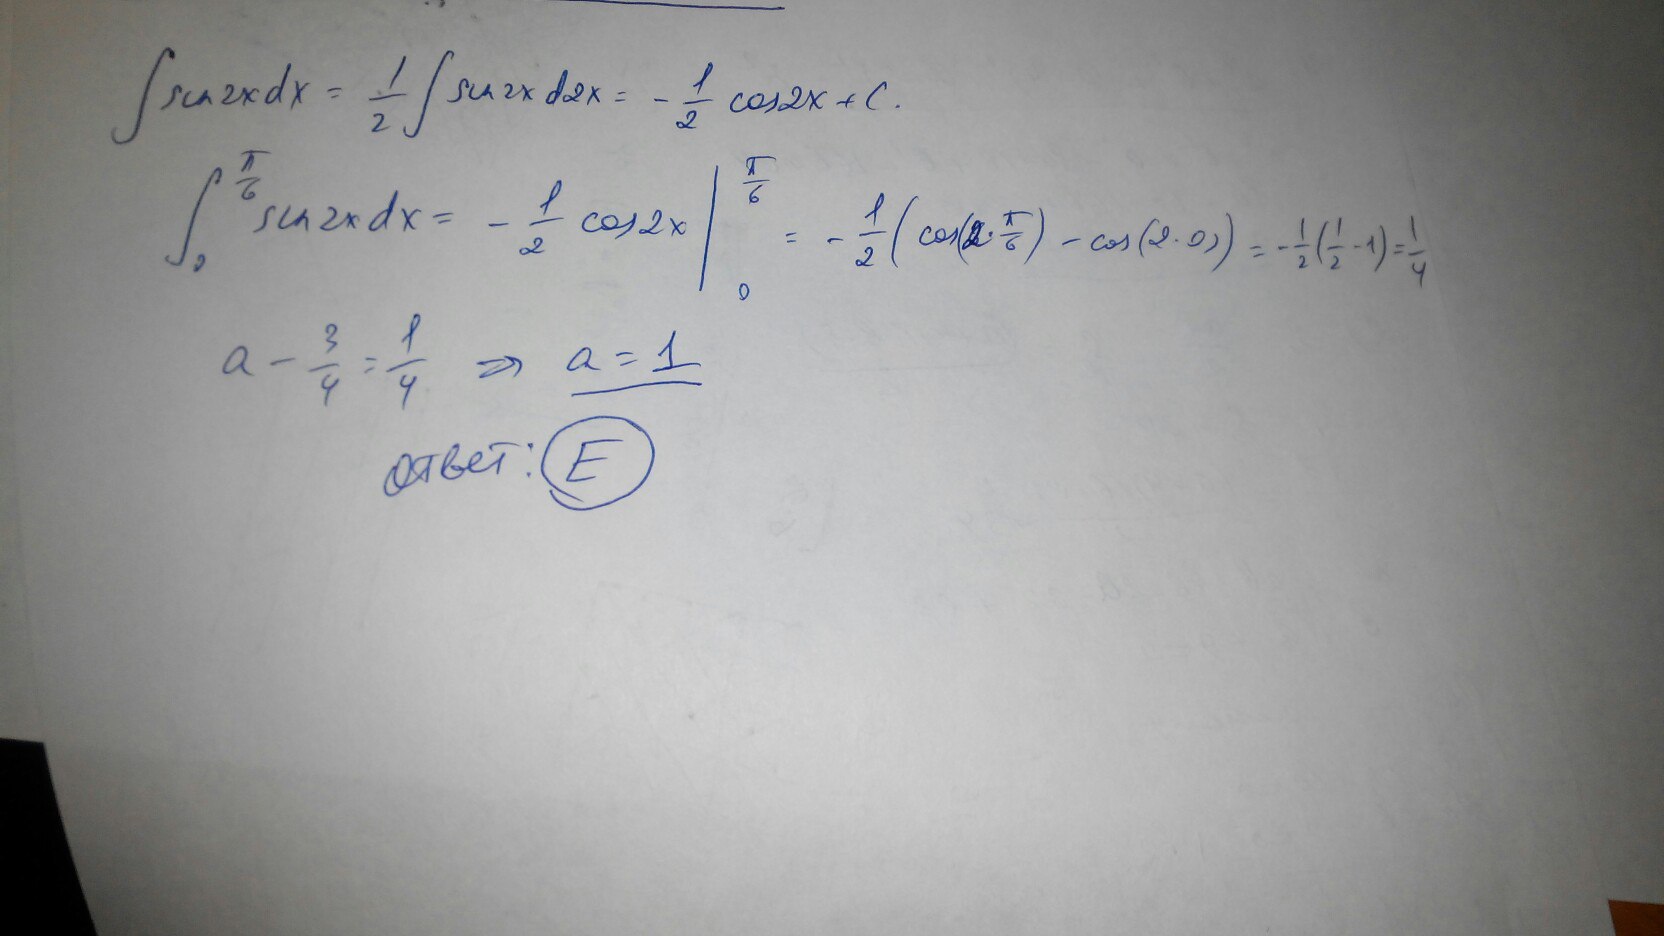 ∫ sin 2x dx = 1/2 ∫ sin 2x d2x = - 1/2 cos2x + C.
∫₀^(π/6) sin 2x dx = - 1/2 cos2x |₀^(π/6) = - 1/2 (cos(2·π/6) - cos(2·0)) = - 1/2 (1/2 - 1) = 1/4
a - 3/4 = 1/4 ⇒ a = 1
ответ: E